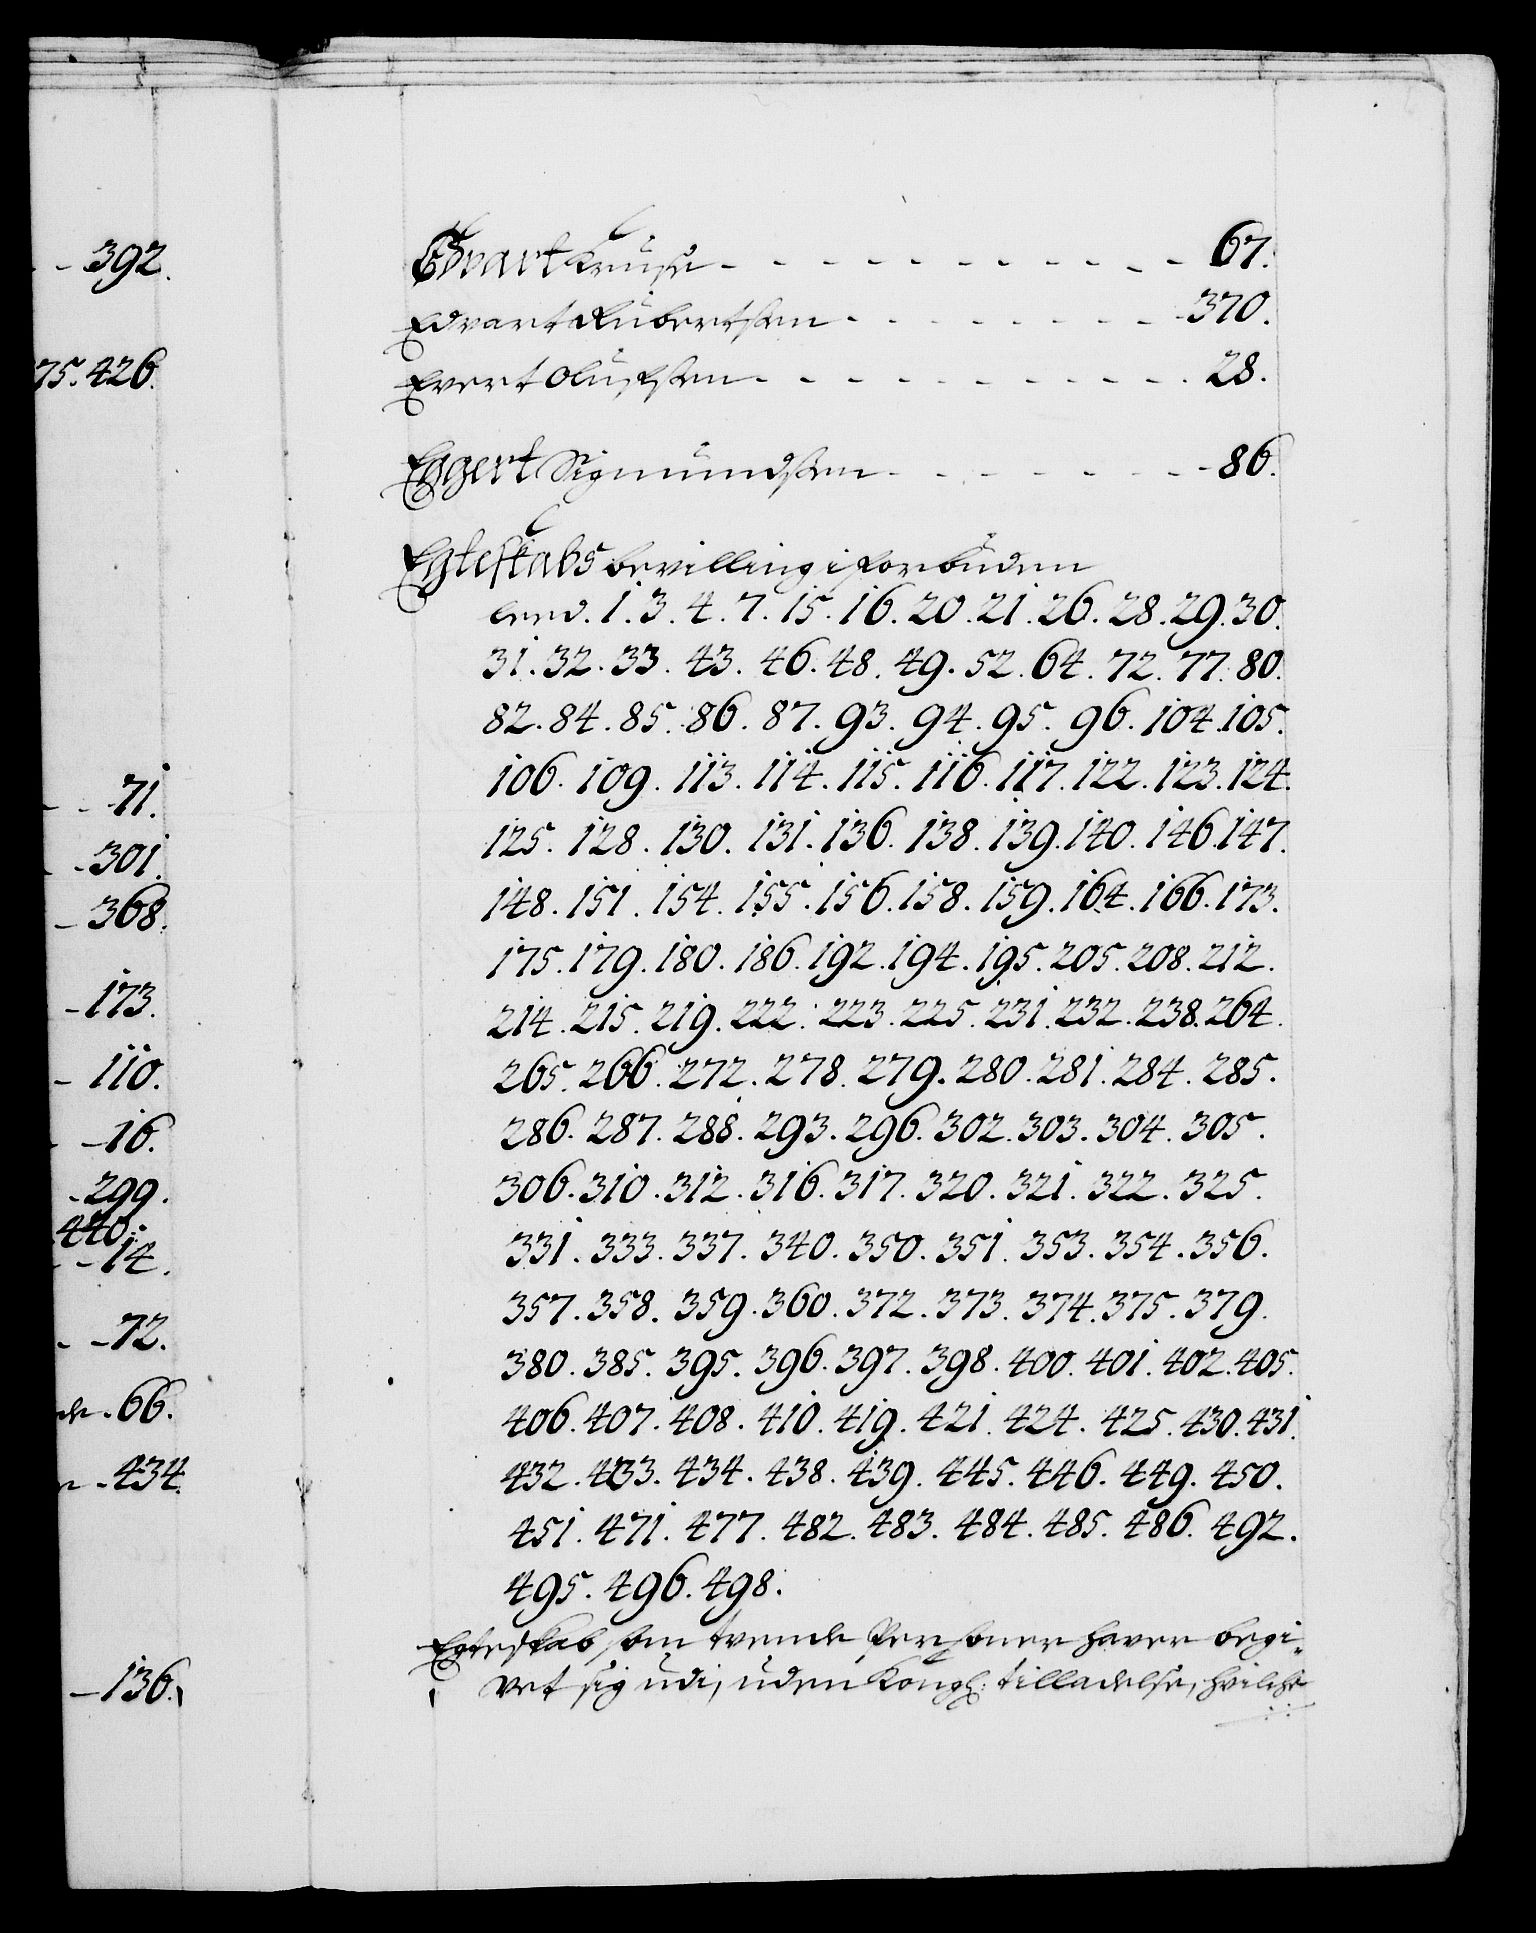 392.
75. 426.
71.
301.
368.
173.
110.
16.
299.
440.
14.
72.
de. 66.
434.
136.
Edvart Kruse 67.
Edvart Rubertsen 370.
Evert Olufsen 28.
Eggert Sigmundsen 86.
Egteskabs bevilling i forbuden
leed. 1. 3. 4. 7. 15. 16. 20. 21. 26. 28. 29. 30.
31. 32. 33. 43. 46. 48. 49. 52. 64. 72. 77. 80.
82. 84. 85. 86. 87. 93. 94. 95. 96. 104. 105.
106. 109. 113. 114. 115. 116. 117. 122. 123. 124.
125. 128. 130. 131. 136. 138. 139. 140. 146. 147.
148. 151. 154. 155. 156. 158. 159. 164. 166. 173.
175. 179. 180. 186. 192. 194. 195. 205. 208. 212.
214. 215. 219. 222. 223. 225. 231. 232. 238. 264.
265. 266. 272. 278. 279. 280. 281. 284. 285.
286. 287. 288. 293. 296. 302. 303. 304. 305.
306. 310. 312. 316. 317. 320. 321. 322. 325.
331. 333. 337. 340. 350. 351. 353. 354. 356.
357. 358. 359. 360. 372. 373. 374. 375. 379.
380. 385. 395. 396. 397. 398. 400. 401. 402. 405.
406. 407. 408. 410. 419. 421. 424. 425. 430. 431.
432. 433. 434. 438. 439. 445. 446. 449. 450.
451. 471. 477. 482. 483. 484. 485. 486. 492.
495. 496. 498.
Egteskab som tvende Personer haver begi-
vet sig udi, uden Kongl: tilladelse, hvilche